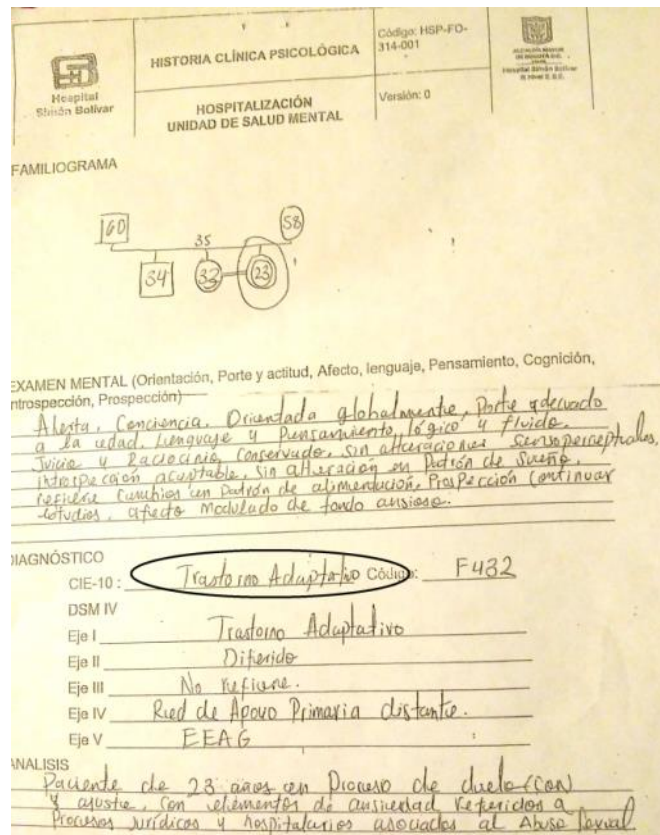 Hospital
Simón Bolívar
HISTORIA CLÍNICA PSICOLÓGICA
HOSPITALIZACIÓN
UNIDAD DE SALUD MENTAL
Código: HSP-FO-
314-001
Versión: 0
Hospital Simón Bolívar
FAMILIOGRAMA
60
58
35
34
32
23
EXAMEN MENTAL (Orientación, Porte y actitud, Afecto, lenguaje, Pensamiento, Cognición,
ntrospección, Prospección)
Alerta, Conciencia. Orientada globalmente, Porte adecuado
a la edad. Lenguaje y Pensamiento lógico y fluido.
Juicio y Raciocinio Conservado, sin alteraciones sensoperceptuales,
introspección aceptable, sin alteración en Patrón de Sueño,
refiere Cambios en Patrón de alimentación, Prospección Continuar
estudios, afecto Modulado de fondo ansioso.
DIAGNÓSTICO
CIE-10 : Trastorno Adaptativo Código: F432
DSM IV
Eje I Trastorno Adaptativo
Eje II Diferido
Eje III No Refiere.
Eje IV Red de Apoyo Primaria distante.
Eje V EEAG
ANALISIS
Paciente de 23 años en Proceso de duelo
y ajuste, Con elementos de ansiedad Referidos a
Procesos Jurídicos y hospitalarios asociados al Abuso